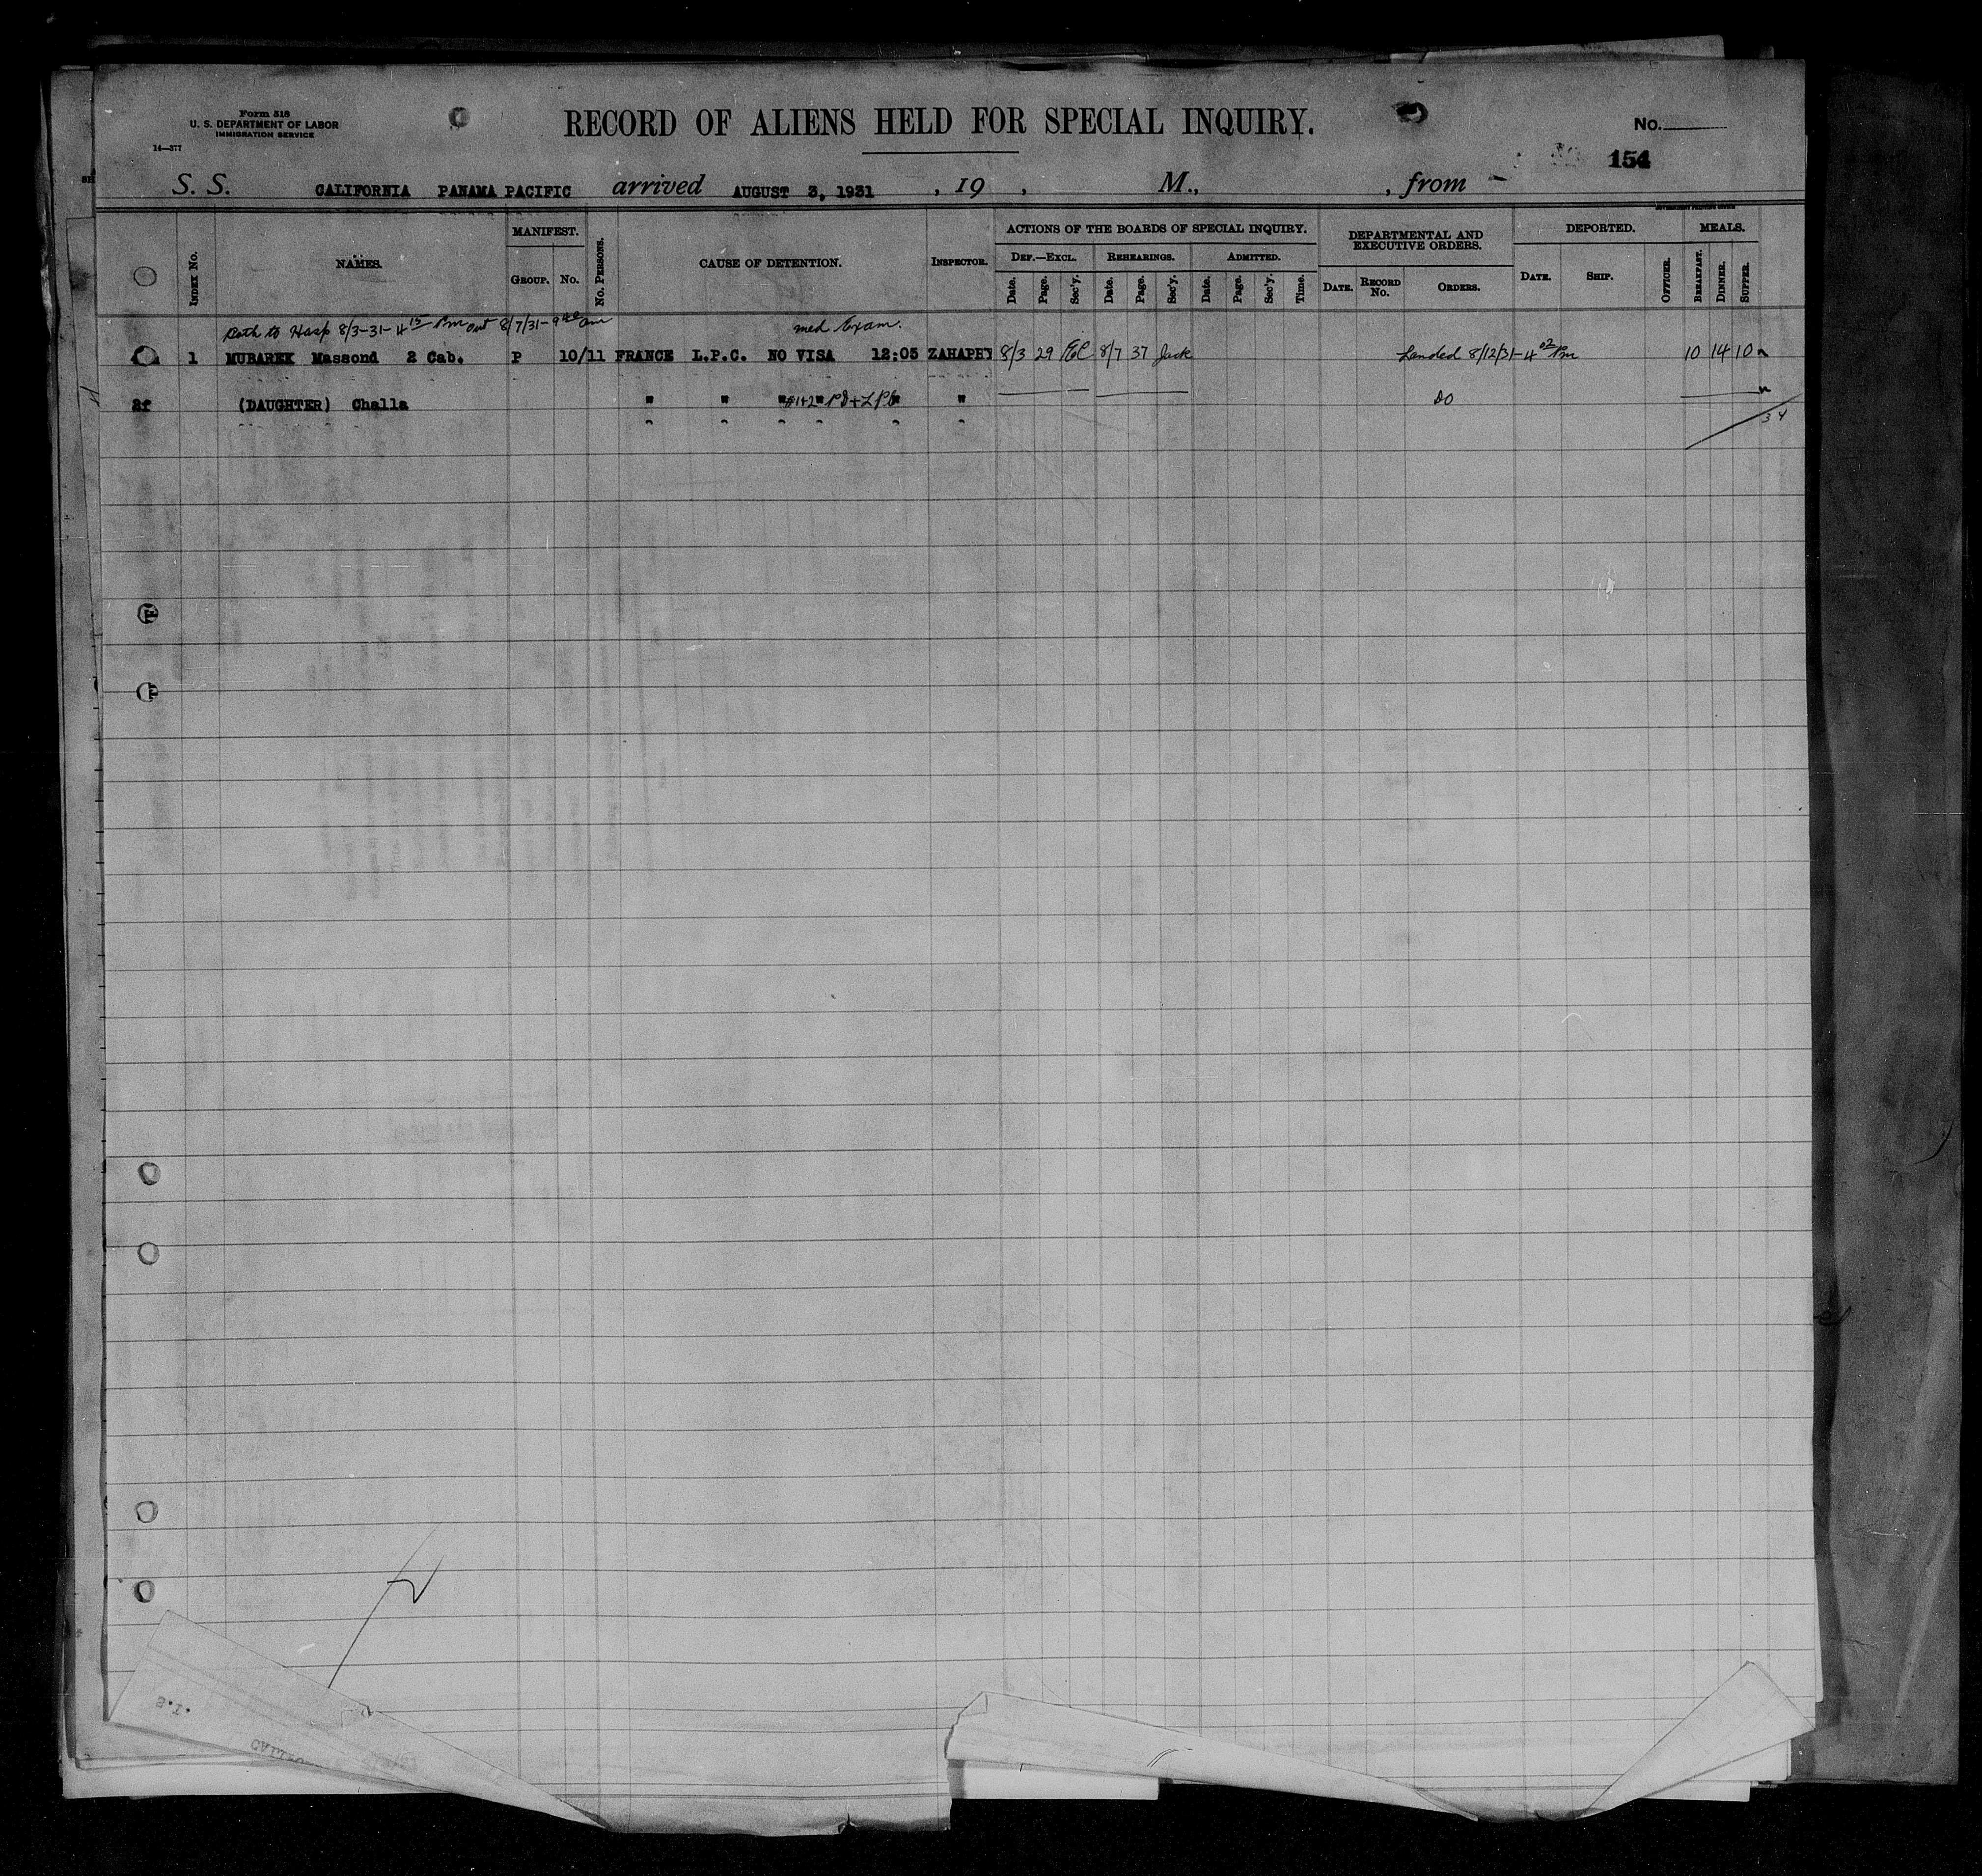 Form 518
U. S. DEPARTMENT OF LABOR
IMMIGRATION SERVICE
14—377
RECORD OF ALIENS HELD FOR SPECIAL INQUIRY.
No.
154
S. S. CALIFORNIA PANAMA PACIFIC arrived AUGUST 3, 1931 , 19 , M., , from
Index No. NAMES. MANIFEST. Group. No. No. Persons. CAUSE OF DETENTION. Inspector. ACTIONS OF THE BOARDS OF SPECIAL INQUIRY. Def.—Excl. Date. Page. Sec'y. Rehearings. Date. Page. Sec'y. Admitted. Date. Page. Sec'y. Time. DEPARTMENTAL AND EXECUTIVE ORDERS. Date. Record No. Orders. DEPORTED. Date. Ship. Officer. MEALS. Breakfast. Dinner. Supper.
Both to Hosp 8/3-31-4 15 Pm out 8/7/31-9 40 am med Exam.
1 MUBAREK Massond 2 Cab. P 10/11 FRANCE L.P.C. NO VISA 12:05 ZAHAPHY 8/3 29 8/7 37 Jack Landed 8/12/31-4 02 Pm 10 14 10
2f (DAUGHTER) Challa " " #1+2 PD+LPC " DO
34
S.I.